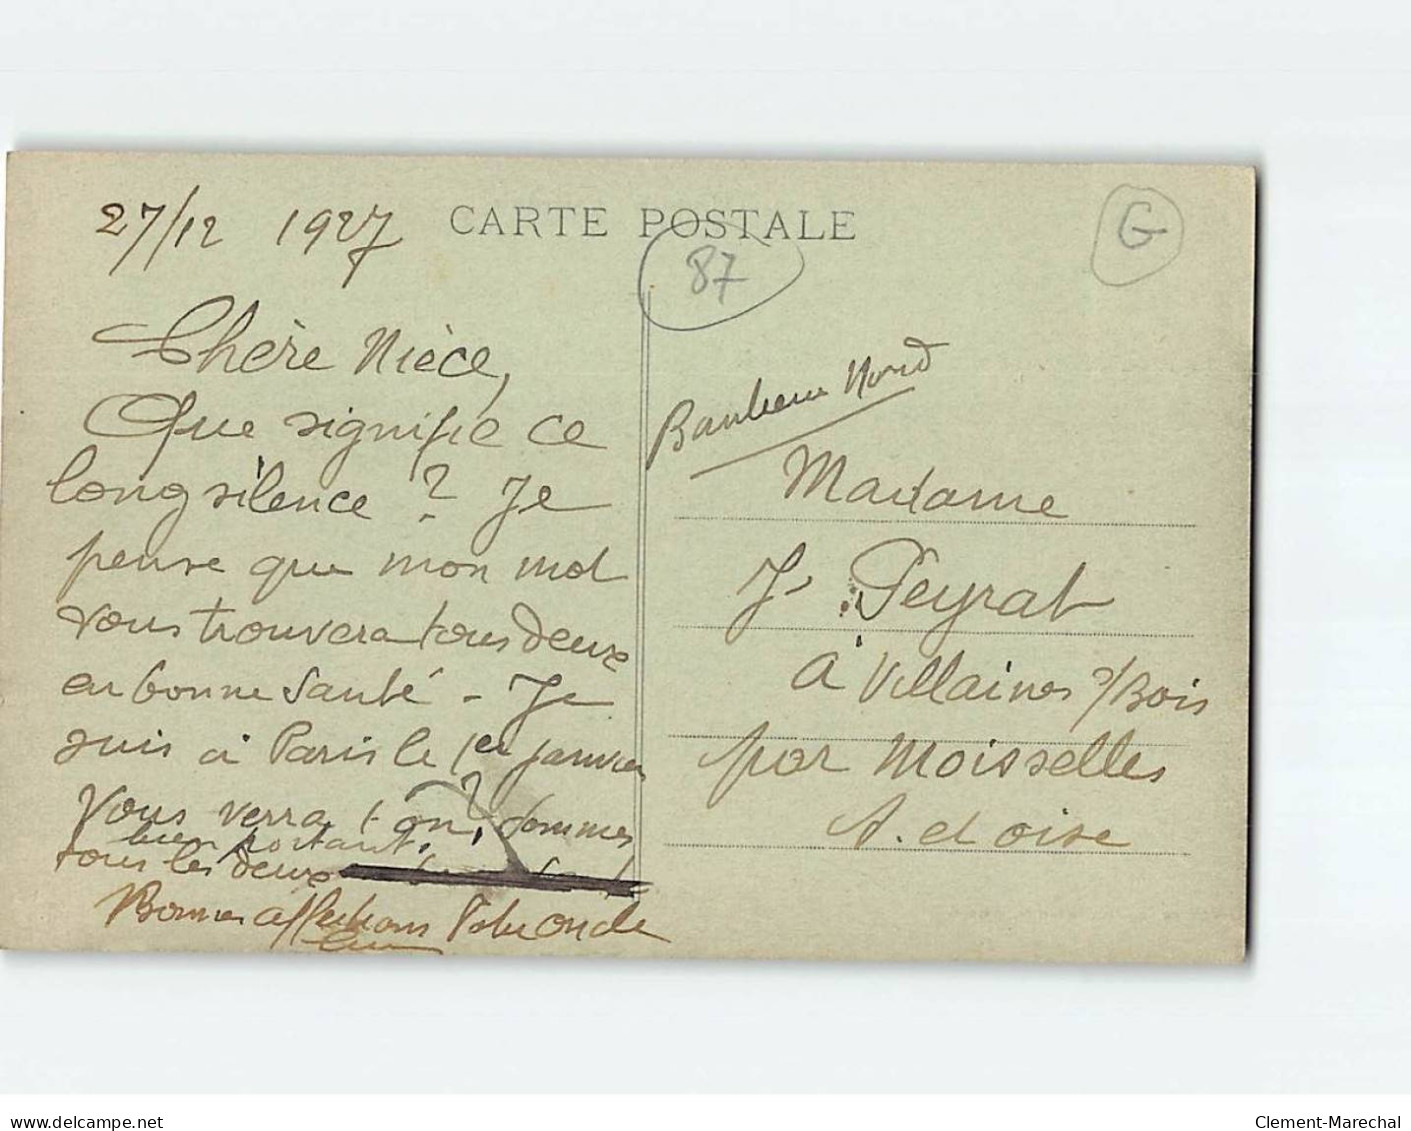 27/12 1927
CARTE POSTALE
G
87
Chère Nièce,
Que signifie ce
long silence ? Je
pense que mon mot
vous trouvera tous deux
en bonne Santé - Je
suis à Paris le 1er janvier
Vous verra t on ? Sommes
bien portant.
tous les deux
Bonnes affections Votre oncle
Banlieue Nord
Madame
J. Peyrat
à Villaines s/Bois
par Moisselles
S. et oise
Clement-Marechal